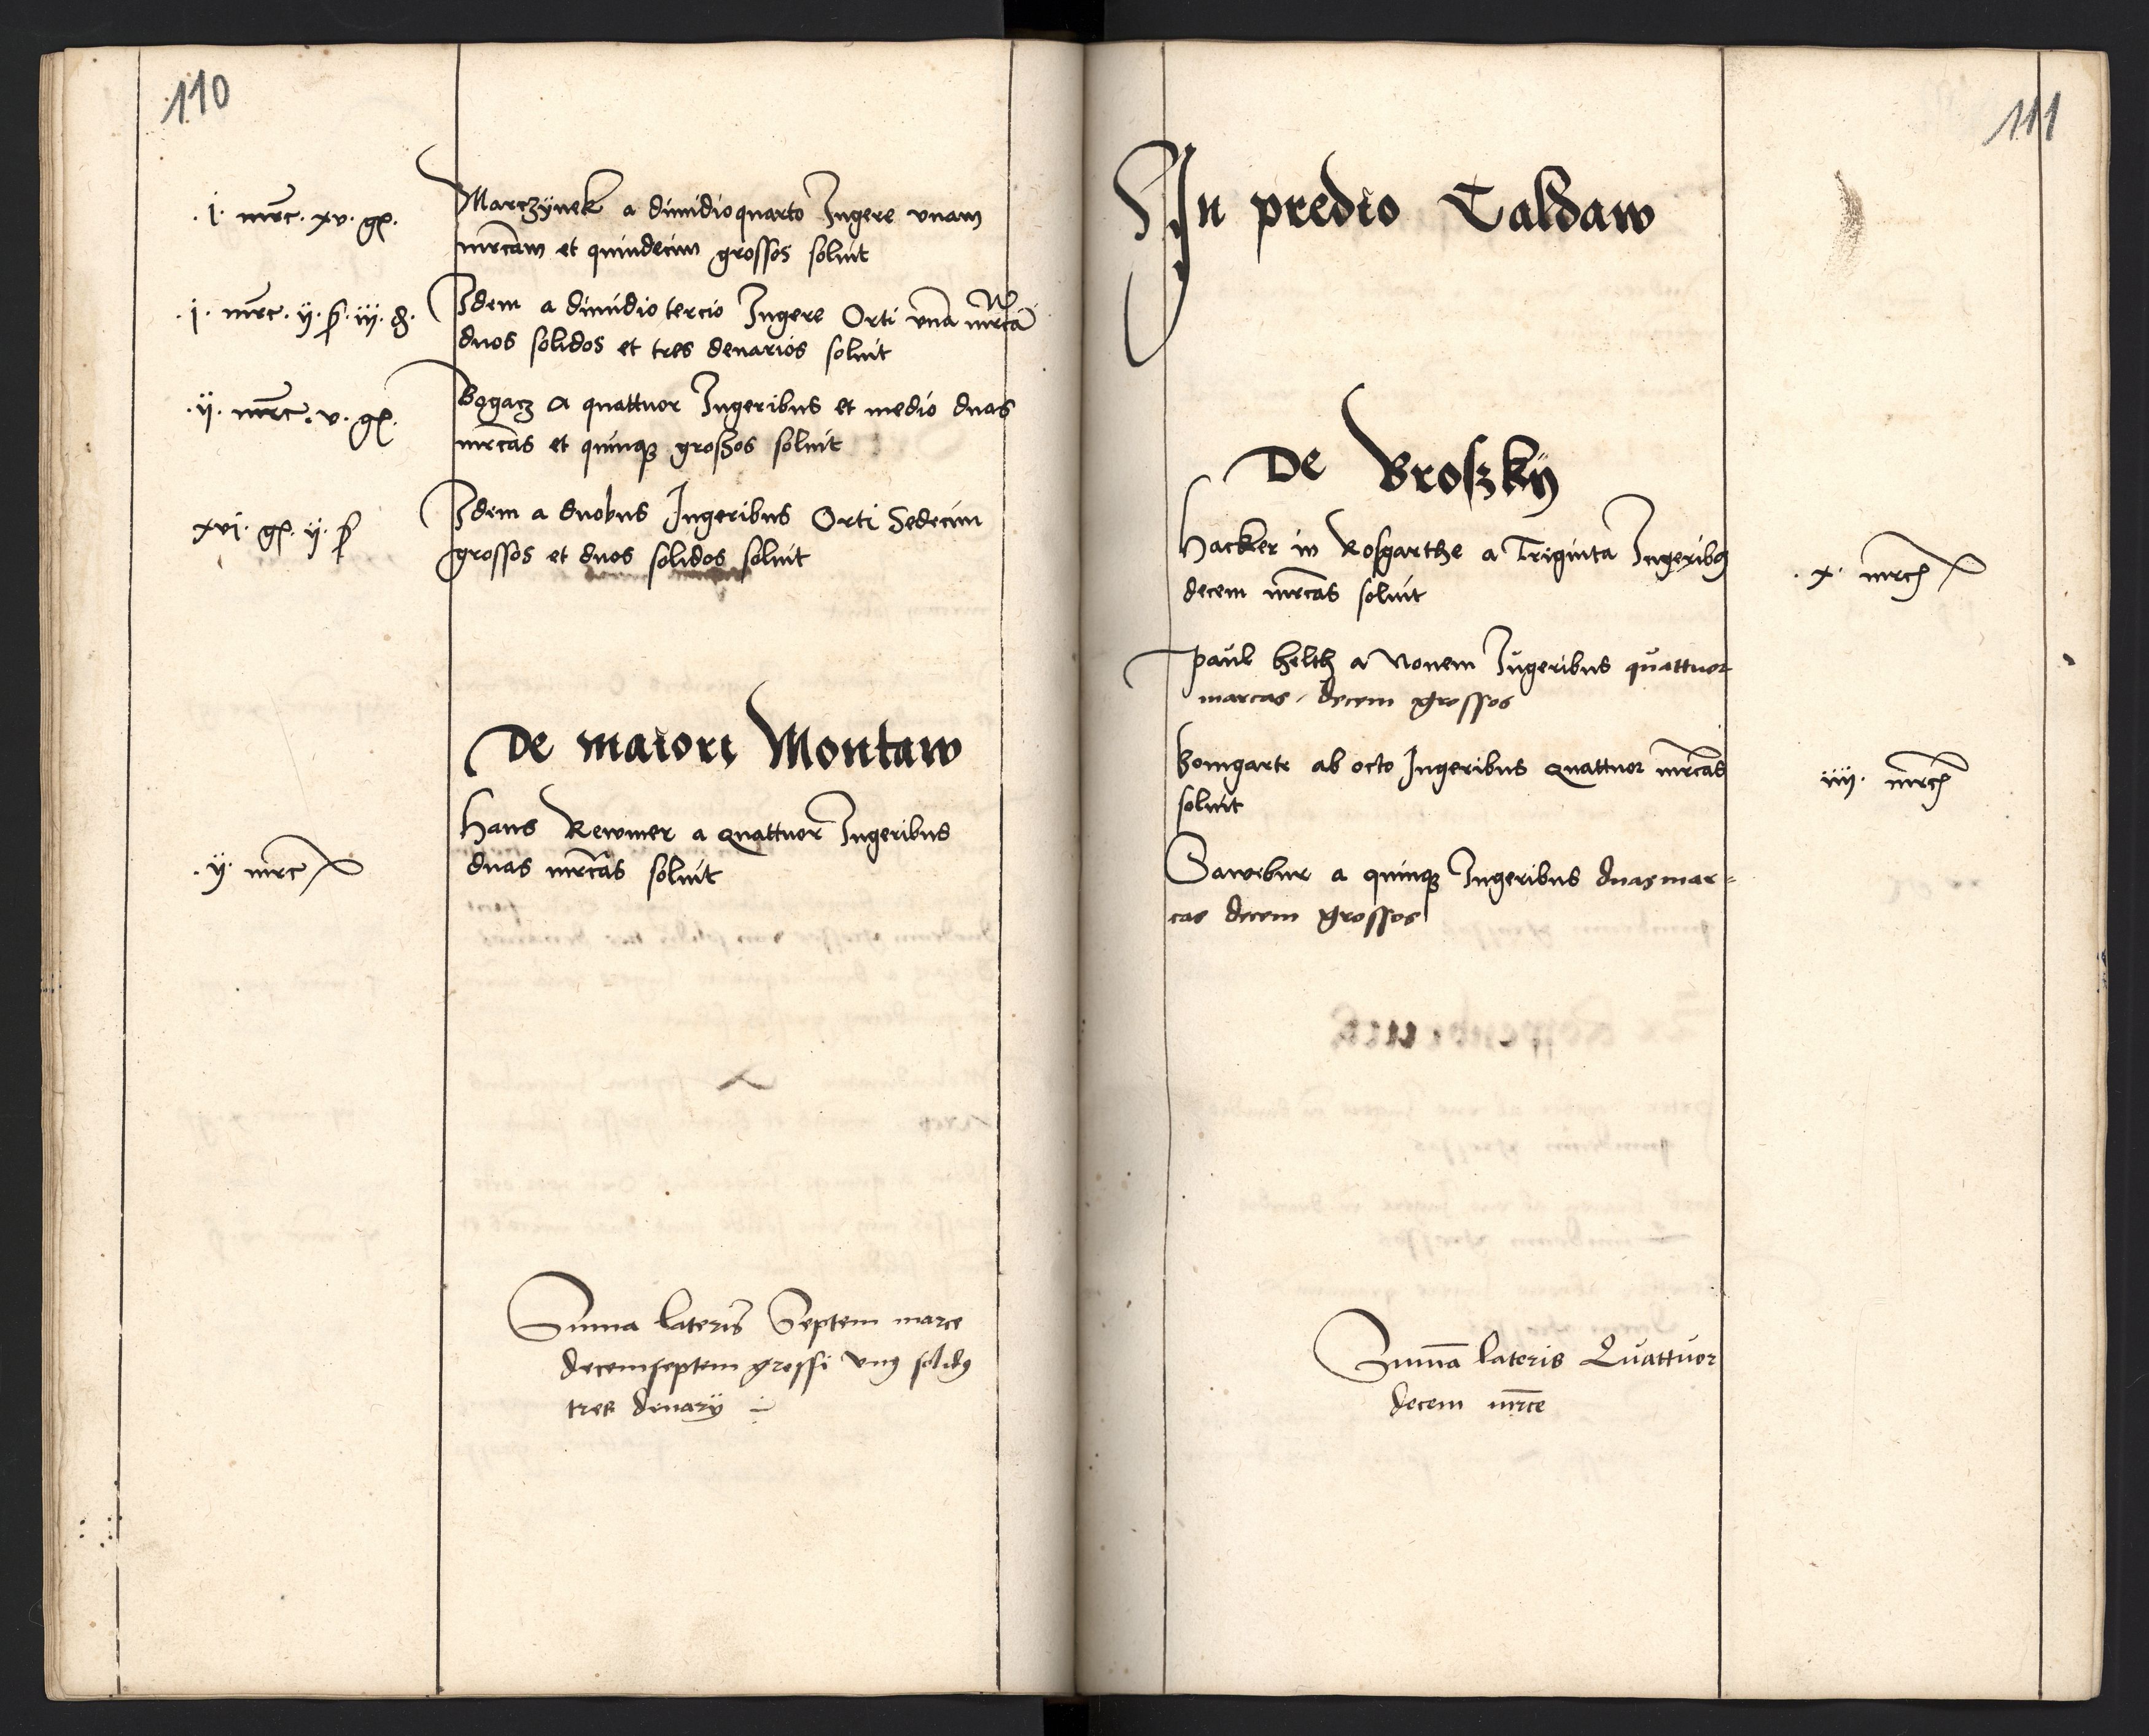 110
.i. mrc. xv. gͬ.
Marczÿnek a dimidioquarto Iugere vnam
mrcam et quindecim grossos soluit
.i. mrc. ij. ꝭ. iij. ₰.
Idem a dimidio tercio Iugere Orti vna mrca
duos solidos et tres denarios soluit
.ij. mrc. v. gͬ.
Bogacz a quattuor Iugeribus et medio duas
mrcas et quinqꝫ großos soluit
xvi. gͬ. ij. ꝭ
Idem a duobus Iugeribus Orti Sedecim
grossos et duos solidos soluit
De maiori Montaw
Hans Rewmer a quattuor Iugeribus
.ij. mrc
duas mrcas soluit
Suma lateris Septem marce
decemseptem grossi vnꝰ solidꝰ
tres denarÿ
111
In predio Caldaw
De Broszkÿ
Hacker in Rosgarthe a Triginta Iugeribꝫ
decem mrcas soluit
.x. mrcꝭ
Paul heltz a Nouem Iugeribus quattuor
marcas decem grossos
Bomgarte ab octo Iugeribus quattuor mrcas
soluit
iiij. mrcꝭ
Sawibur a quinqꝫ Iugeribus duas mar=
cas decem grossos
Suma lateris Quattuor
decem mrce